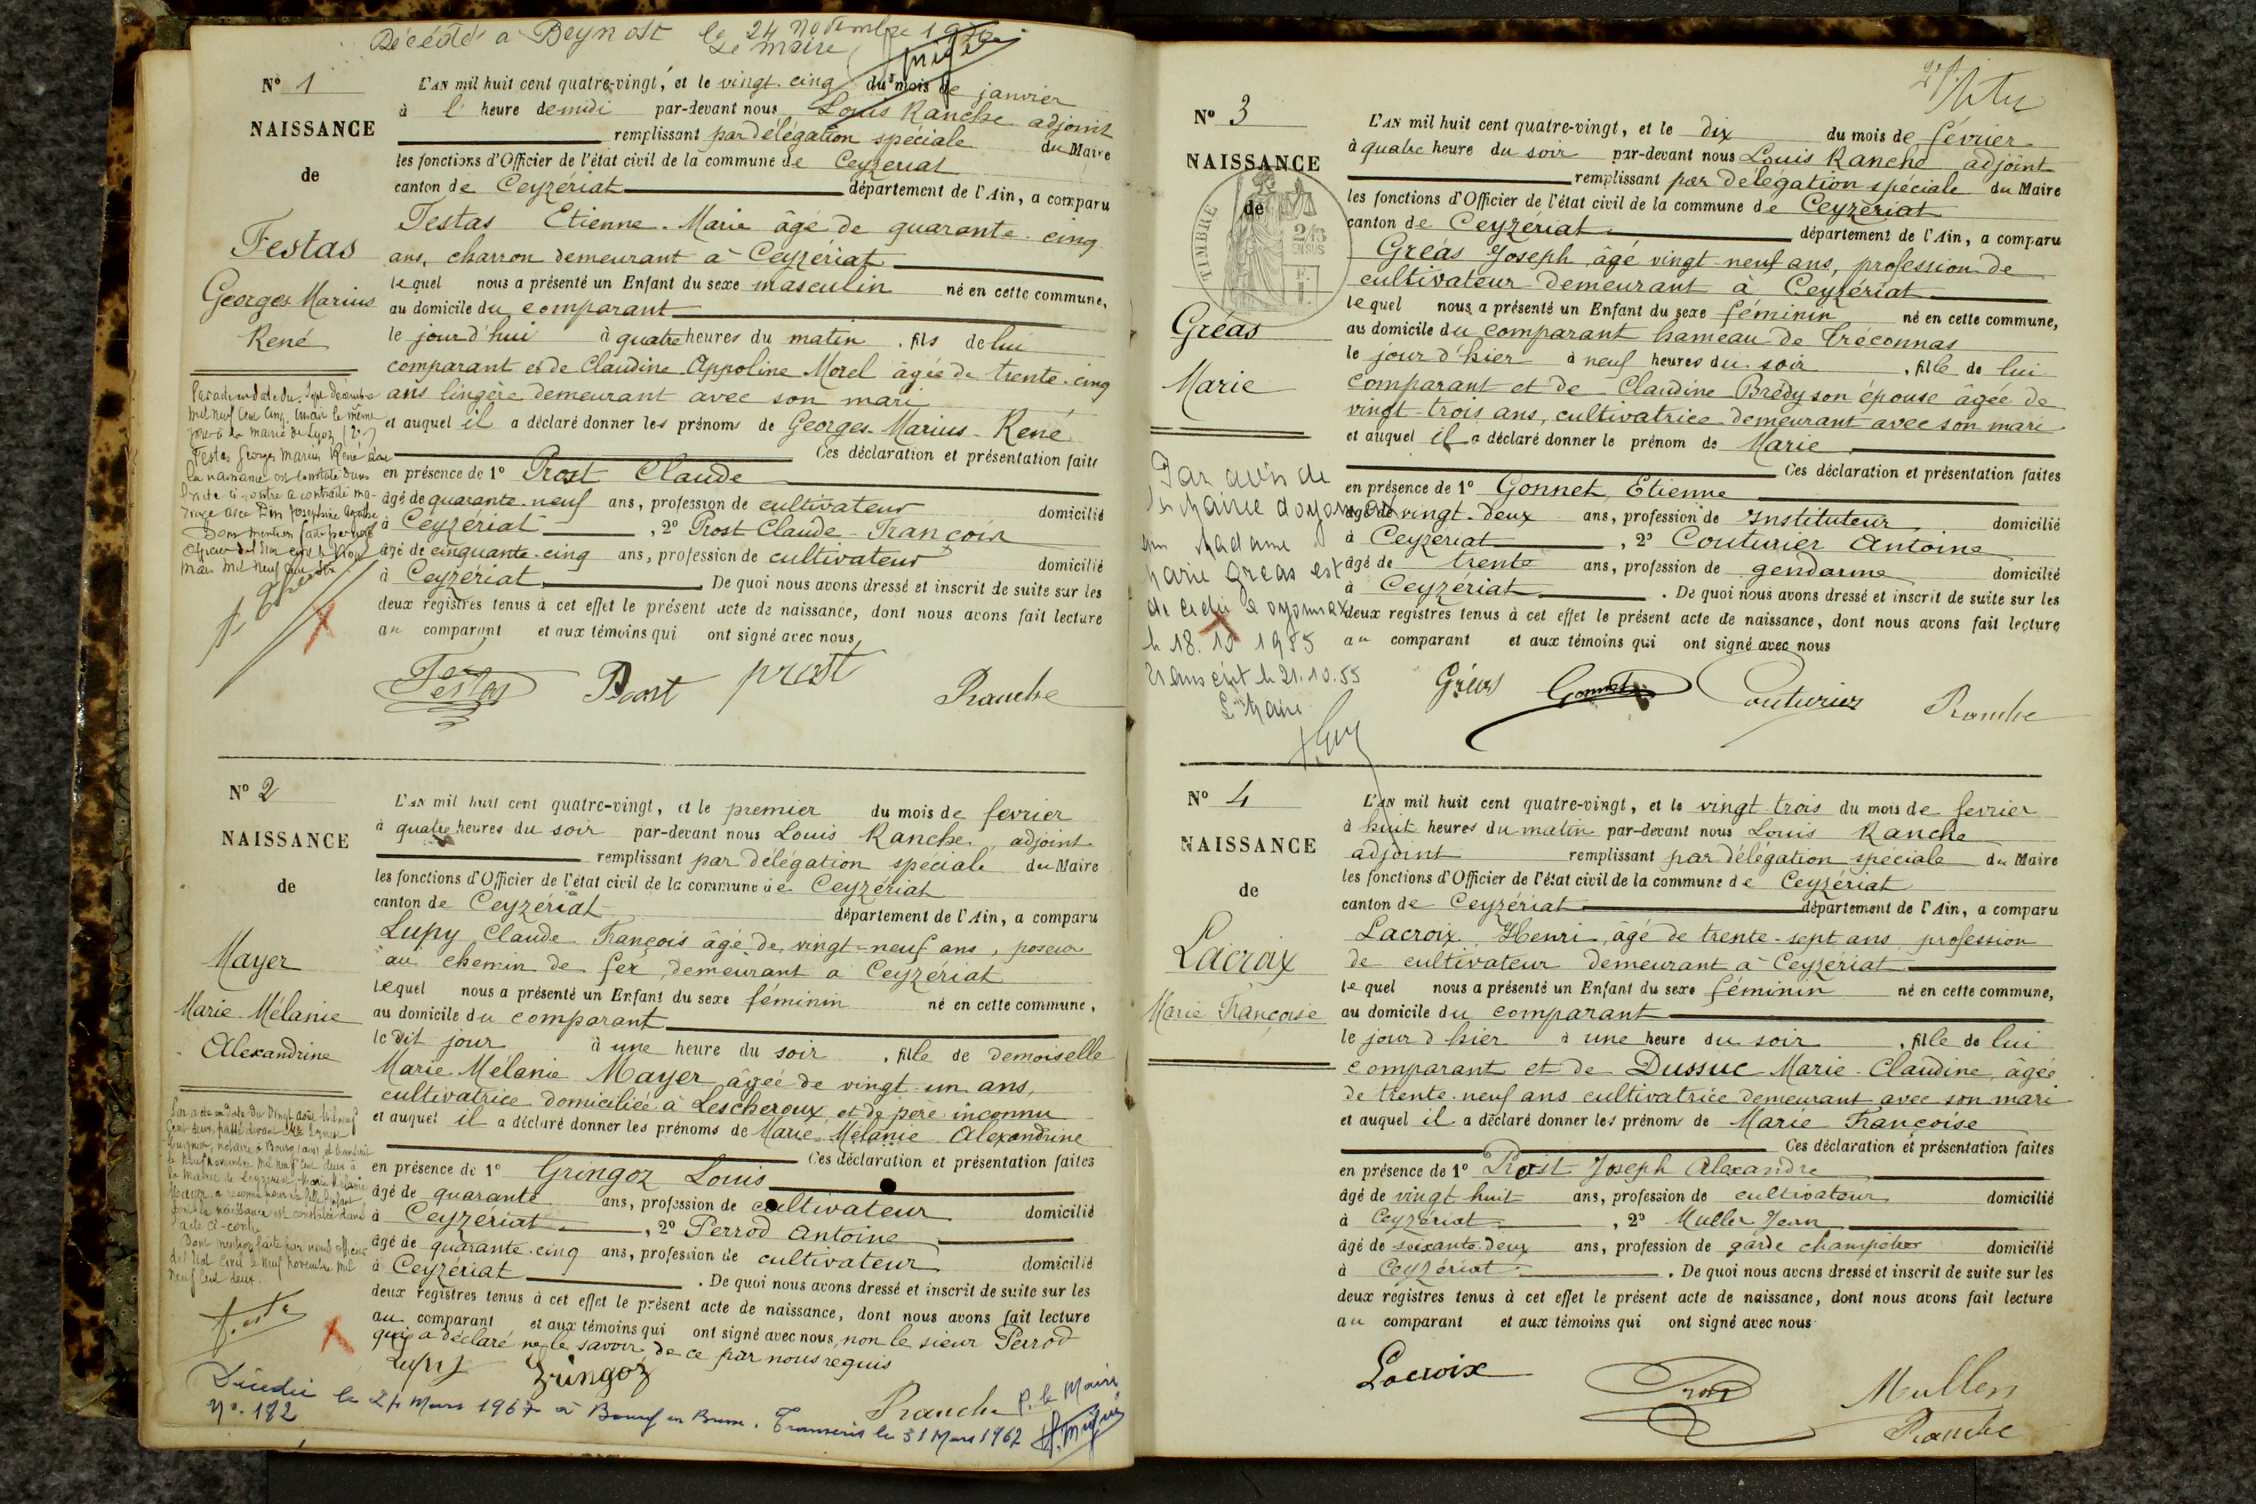 Décédé à Beynost le 24 Novembre
Le maire
N° 1
NAISSANCE
de
Festas
Georges Marius
René
L'AN mil huit cent quatre-vingt, et le vingt-cinq du mois de janvier
à l' heure de midi par-devant nous Louis Ranche adjoint
remplissant par délégation spéciale du Maire
les fonctions d'Officier de l'état civil de la commune de Ceyzériat
canton de Ceyzériat département de l'Ain, a comparu
Festas Etienne-Marie âgé de quarante-cinq
ans, charron demeurant à Ceyzériat
lequel nous a présenté un Enfant du sexe masculin né en cette commune,
au domicile du comparant
le jour d'hui à quatre heures du matin, fils de lui
comparant et de Claudine Appoline Morel âgée de trente-cinq
ans lingère demeurant avec son mari
et auquel il a déclaré donner les prénoms de Georges-Marius-René
Ces déclaration et présentation faites
en présence de 1° Prost Claude
âgé de quarante-neuf ans, profession de cultivateur domicilié
à Ceyzériat, 2° Prost Claude-François
âgé de cinquante-cinq ans, profession de cultivateur domicilié
à Ceyzériat De quoi nous avons dressé et inscrit de suite sur les
deux registres tenus à cet effet le présent acte de naissance, dont nous avons fait lecture
au comparant et aux témoins qui ont signé avec nous
Par acte en date du sept décembre
mil neuf cent cinq
la mairie de Lyon
Festas Georges Marius René
la naissance est constatée dans
l'acte ci-contre a contracté ma-
riage avec
Festas Prost Prost Ranche
N° 2
NAISSANCE
de
Mayer
Marie-Mélanie
Alexandrine
L'AN mil huit cent quatre-vingt, et le premier du mois de fevrier
à quatre heures du soir par-devant nous Louis Ranche, adjoint
remplissant par délégation spéciale du Maire
les fonctions d'Officier de l'état civil de la commune de Ceyzériat
canton de Ceyzériat département de l'Ain, a comparu
Lupy Claude François âgé de vingt-neuf ans, poseur
au chemin de fer, demeurant a Ceyzériat
lequel nous a présenté un Enfant du sexe féminin né en cette commune,
au domicile du comparant
le dit jour à une heure du soir, fille de demoiselle
Marie Mélanie Mayer âgée de vingt-un ans,
cultivatrice domiciliée à Lescheroux et de père inconnu
et auquel il a déclaré donner les prénoms de Marie-Mélanie Alexandrine
Ces déclaration et présentation faites
en présence de 1° Gringoz Louis
âgé de quarante ans, profession de cultivateur domicilié
à Ceyzériat, 2° Perrod Antoine
âgé de quarante-cinq ans, profession de cultivateur domicilié
à Ceyzériat. De quoi nous avons dressé et inscrit de suite sur les
deux registres tenus à cet effet le présent acte de naissance, dont nous avons fait lecture
au comparant et aux témoins qui ont signé avec nous, non le sieur Perrod
qui a déclaré ne le savoir de ce par nous requis
Par acte en date du vingt août mil neuf
cent deux, passé devant
notaire à Bourg (ain) et transcrit
le neuf novembre mil neuf cent deux à
la mairie de Ceyzériat, Marie Mélanie
Mayer a reconnu pour sa fille l'enfant
dont la naissance est constatée dans
l'acte ci-contre
Dont mention faite par nous officier
de l'état civil le neuf novembre mil
neuf cent deux.
Lupy Gringoz
Ranche P. le Maire
Décédée le 24 Mars 1967 à Bourg en Bresse. Transcris le 31 Mars 1967
N°. 182
N° 3
NAISSANCE
de
TIMBRE
Gréas
Marie
L'AN mil huit cent quatre-vingt, et le dix du mois de février
à quatre heure du soir par-devant nous Louis Ranche adjoint
remplissant par délégation spéciale du Maire
les fonctions d'Officier de l'état civil de la commune de Ceyzériat
canton de Ceyzériat département de l'Ain, a comparu
Gréas Joseph âgé vingt-neuf ans, profession de
cultivateur demeurant à Ceyzériat
lequel nous a présenté un Enfant du sexe féminin né en cette commune,
au domicile du comparant hameau de Tréconnas
le jour d'hier à neuf heures du soir, fille de lui
comparant et de Claudine Brédy son épouse âgée de
vingt-trois ans, cultivatrice demeurant avec son mari
et auquel il a déclaré donner le prénom de Marie
Ces déclaration et présentation faites
en présence de 1° Gonnet Etienne
âgé de vingt-deux ans, profession de Instituteur domicilié
à Ceyzériat, 2° Couturier Antoine
âgé de trente ans, profession de gendarme domicilié
à Ceyzériat. De quoi nous avons dressé et inscrit de suite sur les
deux registres tenus à cet effet le présent acte de naissance, dont nous avons fait lecture
au comparant et aux témoins qui ont signé avec nous
Par avis de
la Mairie d'oyonnax
Madame
Marie Gréas est
décédée à oyonnax
le 18.10 1955
Transcrit le 21.10.55
Le Maire
Gréas Gonnet Couturier Ranche
N° 4
NAISSANCE
de
Lacroix
Marie Françoise
L'AN mil huit cent quatre-vingt, et le vingt-trois du mois de fevrier
à huit heures du matin par-devant nous Louis Ranche
adjoint remplissant par délégation spéciale du Maire
les fonctions d'Officier de l'état civil de la commune de Ceyzériat
canton de Ceyzériat département de l'Ain, a comparu
Lacroix Henri, âgé de trente-sept ans profession
de cultivateur demeurant à Ceyzériat
lequel nous a présenté un Enfant du sexe féminin né en cette commune,
au domicile du comparant
le jour d'hier à une heure du soir, fille de lui
comparant et de Dussuc Marie-Claudine, âgée
de trente-neuf ans cultivatrice demeurant avec son mari
et auquel il a déclaré donner les prénoms de Marie Françoise
Ces déclaration et présentation faites
en présence de 1° Prost Joseph Alexandre
âgé de vingt huit ans, profession de cultivateur domicilié
à Ceyzériat, 2° Muller Jean
âgé de soixante-deux ans, profession de garde champêtre domicilié
à Ceyzériat. De quoi nous avons dressé et inscrit de suite sur les
deux registres tenus à cet effet le présent acte de naissance, dont nous avons fait lecture
au comparant et aux témoins qui ont signé avec nous
Lacroix Prost Muller
Ranche